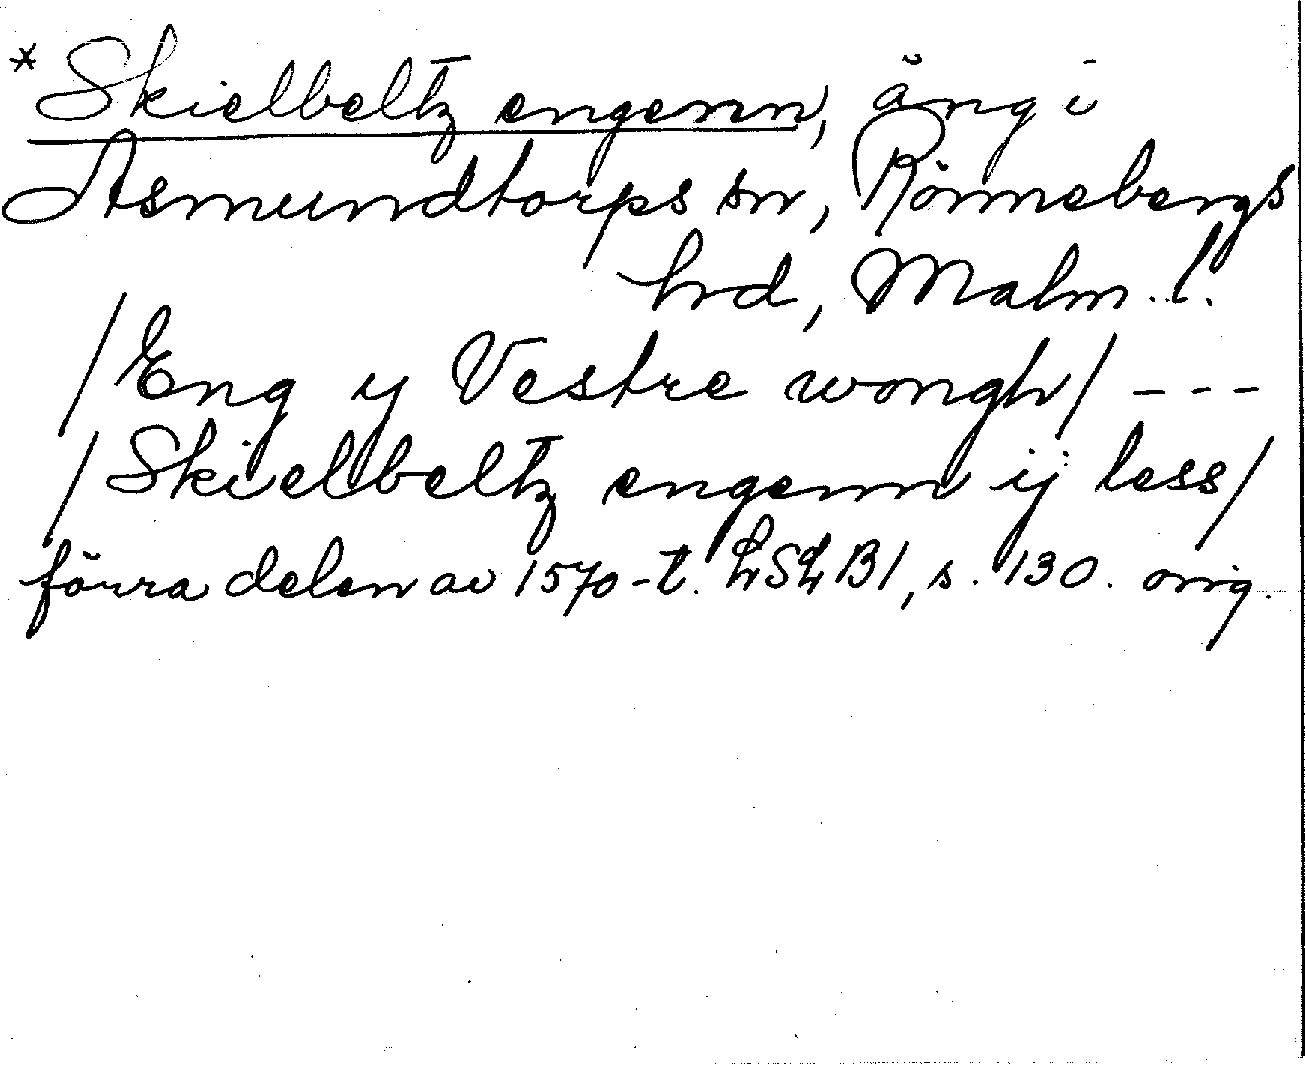 *Skielbeltz engenn, äng i
Asmundtorps sn, Rönnebergs
hrd, Malm. l.
/Eng y Vestre wongh/ ---
/Skielbeltz engenn ij less/
förra delen av 1570-t. LSLB1, s. 130. orig.